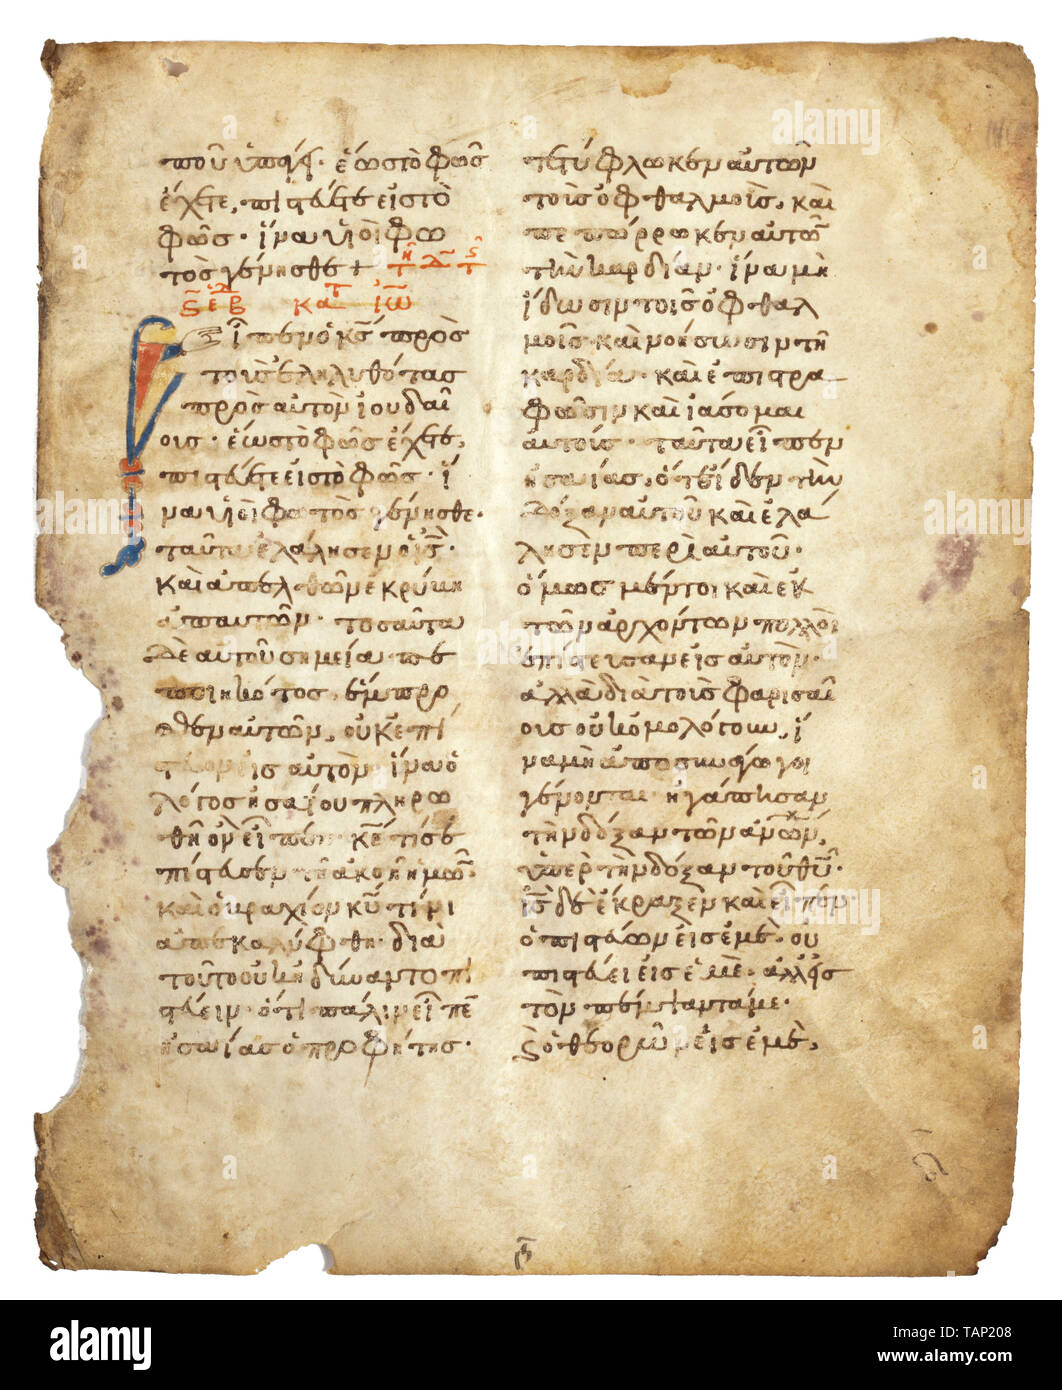 ποῦ ὑπάγει· ἕως τὸ φῶς
ἔχετε, πιστεύετε εἰς τὸ
φῶς· ἵνα υἱοὶ φω
τὸς γένησθε +
κατ ἰω
Εἶπεν ὁ κς πρὸς
τοὺς ἐληλυθότας
πρὸς αὐτὸν ἰουδαί
οις· ἕως τὸ φῶς ἔχετε,
πιστεύετε εἰς τὸ φῶς· ἵ
να υἱοὶ φωτὸς γένησθε·
ταῦτα ἐλάλησεν ὁ ις·
καὶ ἀπελθὼν ἐκρύβη
ἀπ αὐτῶν· τοσαῦτα
δὲ αὐτοῦ σημεῖα πε
ποιηκότος ἔμπρο
σθεν αὐτῶν, οὐκ ἐπί
στευον εἰς αὐτόν· ἵνα ὁ
λόγος ἡσαΐου πληρω
θῇ ὃν εἶπεν· κε τίς ἐ
πίστευσεν τῇ ἀκοῇ ἡμῶν·
καὶ ὁ βραχίων κυ τίνι
ἀπεκαλύφθη· διὰ
τοῦτο οὐκ ἠδύναντο πι
στεύειν· ὅτι πάλιν εἶπεν
ἡσαΐας ὁ προφήτης·
τετύφλωκεν αὐτῶν
τοὺς ὀφθαλμοὺς, καὶ
πεπώρωκεν αὐτῶν
τὴν καρδίαν· ἵνα μὴ
ἴδωσιν τοῖς ὀφθαλ
μοῖς· καὶ νοήσωσιν τῇ
καρδίᾳ· καὶ ἐπιστρα
φῶσιν καὶ ἰάσομαι
αὐτούς· ταῦτα εἶπεν
ἡσαΐας, ὅτε εἶδεν τὴν
δόξαν αὐτοῦ καὶ ἐλά
λησεν περὶ αὐτοῦ·
ὅμως μέντοι καὶ ἐκ
τῶν ἀρχόντων πολλοὶ
ἐπίστευσαν εἰς αὐτόν·
ἀλλὰ διὰ τοὺς φαρισαί
ους οὐχ ὡμολόγουν, ἵ
να μὴ ἀποσυνάγωγοι
γένωνται· ἠγάπησαν
τὴν δόξαν τῶν ανων,
ὑπὲρ τὴν δόξαν τοῦ θυ·
ις δὲ ἔκραξεν καὶ εἶπεν·
ὁ πιστεύων εἰς ἐμὲ, οὐ
πιστεύει εἰς ἐμὲ· ἀλλ εἰς
τὸν πέμψαντά με·
ϗ ὁ θεωρῶν εἰς ἐμὲ,
a
alamy
alamy
Image ID: TAP208
www.alamy.com